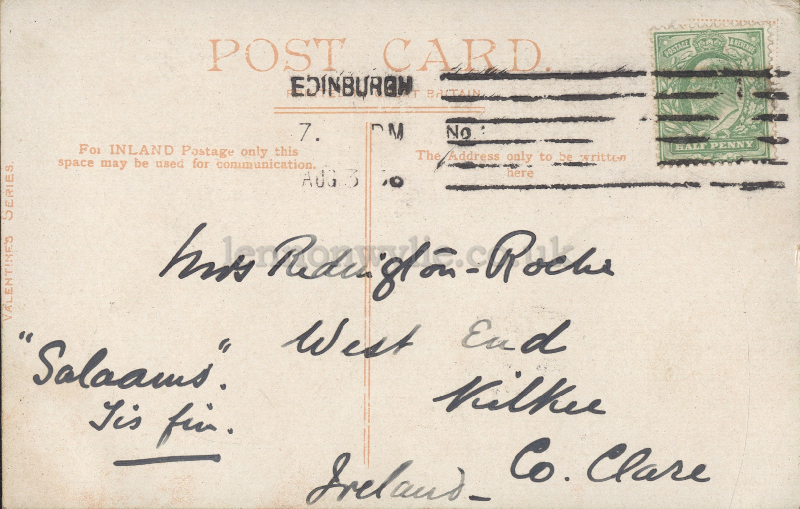 POST CARD.
EDINBURGH
7. PM No. 1
AUG 3 06
POSTAGE & REVENUE
HALF PENNY
For INLAND Postage only this
space may be used for communication.
The Address only to be written
here
VALENTINE'S SERIES
lennonwylie.co.uk
Mrs Redington-Roche
West End
Kilkee
Co. Clare
Ireland
"Salaams".
Tis fin.